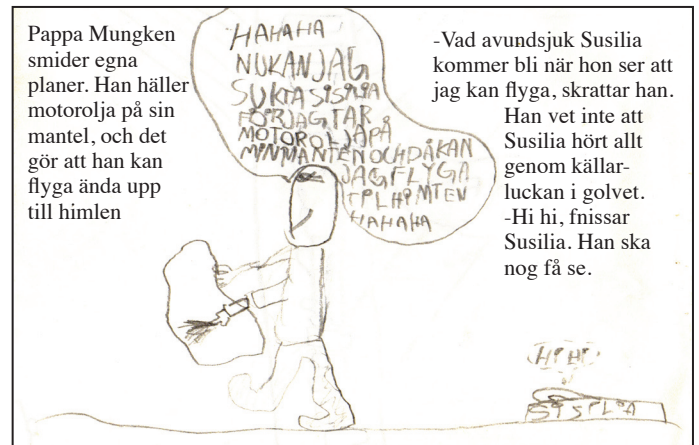 Pappa Mungken
smider egna
planer. Han häller
motorolja på sin
mantel, och det
gör att han kan
flyga ända upp
till himlen
HAHAHA
NUKANJAG
SUKTASISILIA
FÖRJAGTAR
MOTOROLJAPÅ
MINMANTENOCHDÅKAN
JAGFLYGA
TILHIMTEN
HAHAHA
-Vad avundsjuk Susilia
kommer bli när hon ser att
jag kan flyga, skrattar han.
Han vet inte att
Susilia hört allt
genom källar-
luckan i golvet.
-Hi hi, fnissar
Susilia. Han ska
nog få se.
HIHI
SISILIA